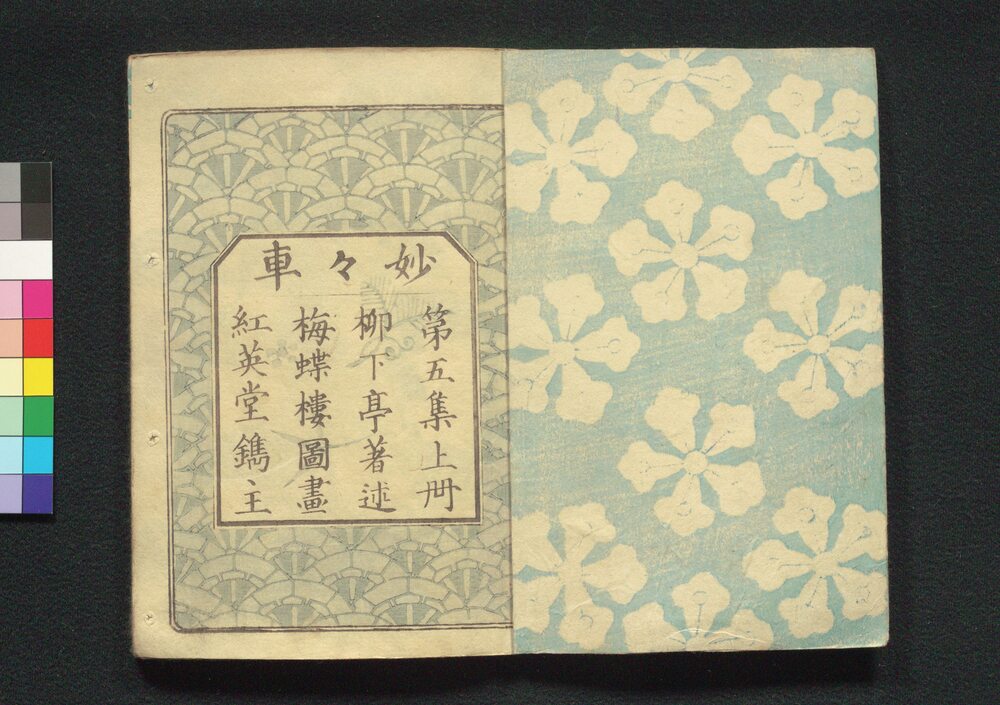 妙々車
第五集上冊
柳下亭著述
梅蝶樓圖畫
紅英堂鐫主